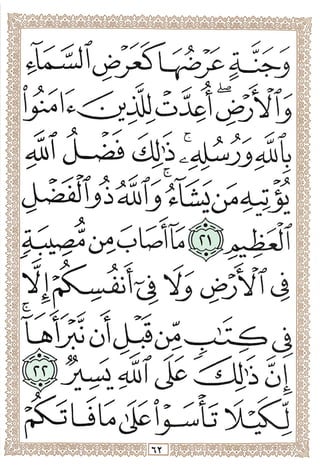 وَجَنَّةٍ عَرْضُهَا كَعَرْضِ ٱلسَّمَآءِ
وَٱلْأَرْضِ أُعِدَّتْ لِلَّذِينَ ءَامَنُوا۟
بِٱللَّهِ وَرُسُلِهِۦۚ ذَٰلِكَ فَضْلُ ٱللَّهِ
يُؤْتِيهِ مَن يَشَآءُۚ وَٱللَّهُ ذُو ٱلْفَضْلِ
ٱلْعَظِيمِ ٢١ مَآ أَصَابَ مِن مُّصِيبَةٍ
فِى ٱلْأَرْضِ وَلَا فِىٓ أَنفُسِكُمْ إِلَّا
فِى كِتَٰبٍ مِّن قَبْلِ أَن نَّبْرَأَهَآۚ
إِنَّ ذَٰلِكَ عَلَى ٱللَّهِ يَسِيرٌ ٢٢
لِّكَيْلَا تَأْسَوْا۟ عَلَىٰ مَا فَاتَكُمْ
٦٢